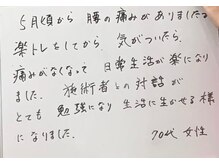 5月頃から 腰の痛みがありましたが
楽トレをしてから、気がついたら
痛みがなくなって 日常生活が楽になり
ました。 施術者との対話が
とても 勉強になり 生活に生かせる様
になりました。
70代 女性